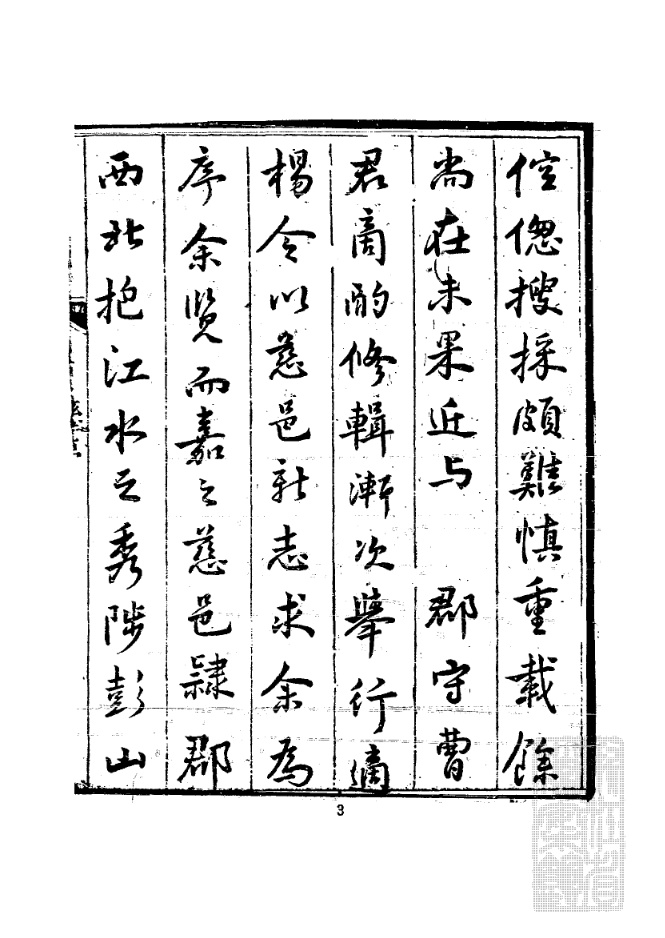 倥偬搜採頗難慎重載餘
尚在未果近与　郡守曹
君商酌修輯漸次舉行適
楊令以慈邑新志求余為
序余覽而嘉之慈邑隸郡
西北抱江水之秀陟彭山
3